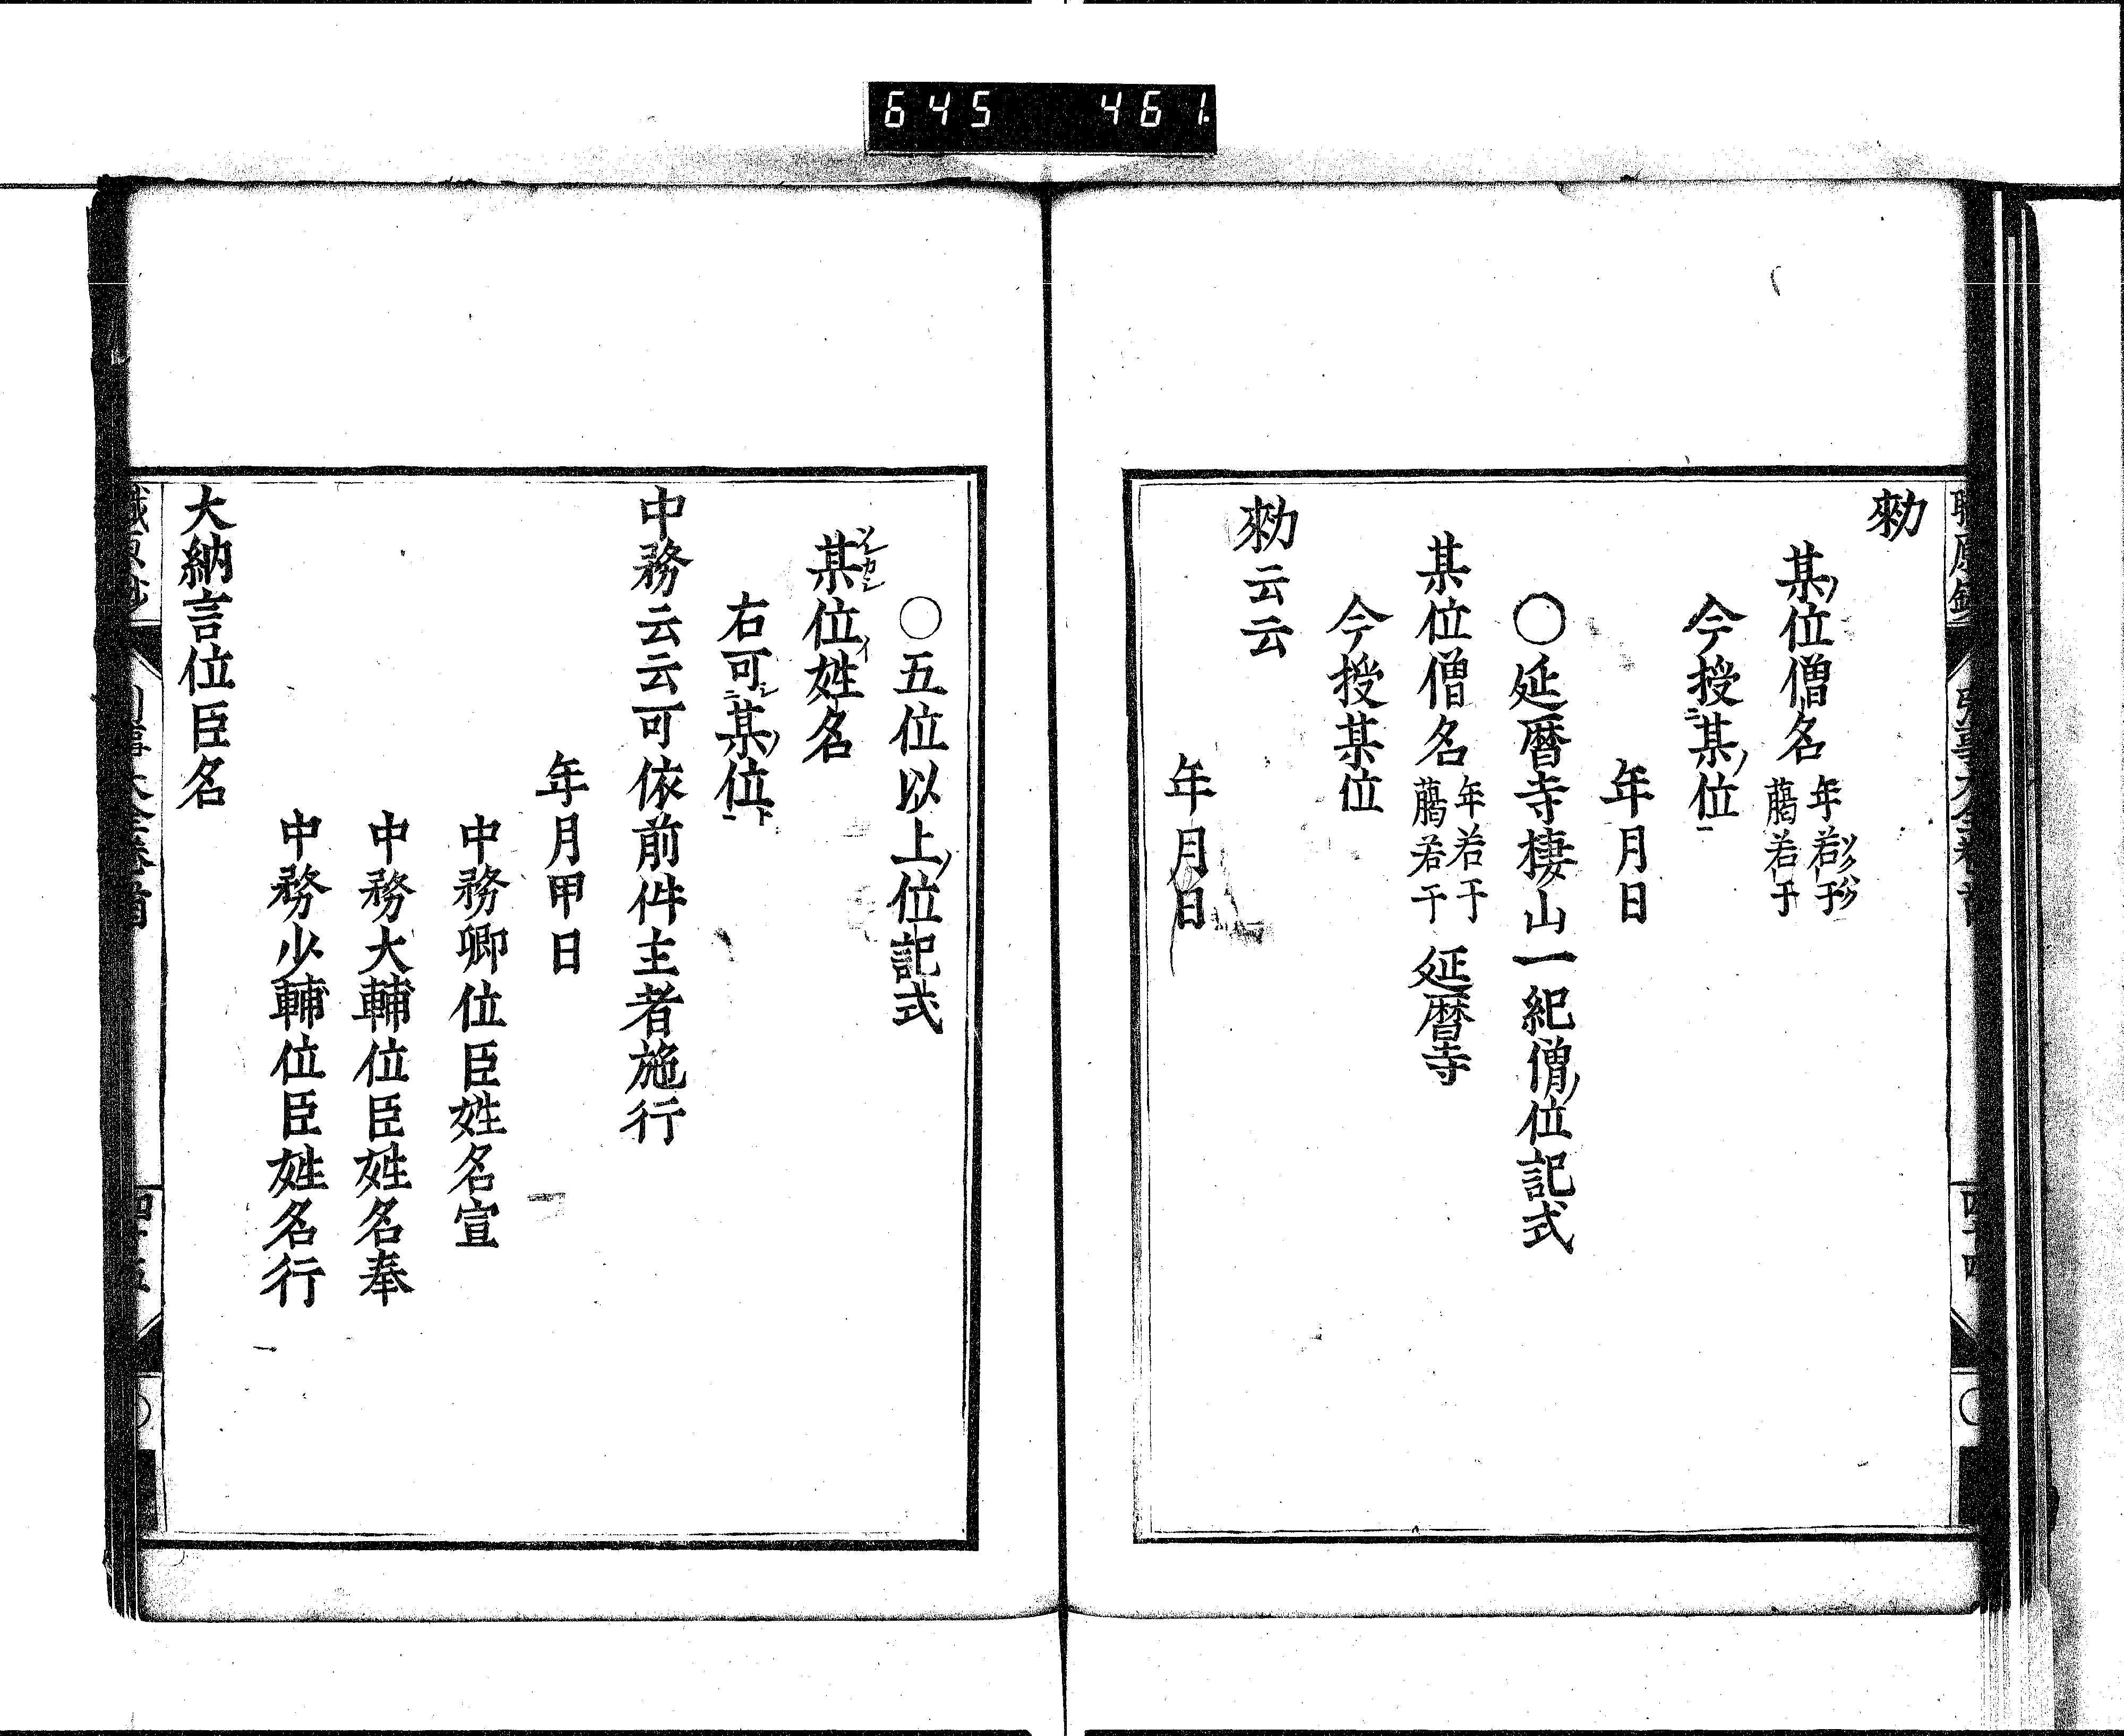 645 461
勅
某位僧名 年若干 﨟若干
今授某位
年月日
○延暦寺棲山一紀僧位記式
某位僧名 年若干 﨟若干 延暦寺
今授某位
勅云云
年月日
四十四
○五位以上位記式
某位姓名
右可某位
中務云云可依前件主者施行
年月甲日
中務卿位臣姓名宣
中務大輔位臣姓名奉
中務少輔位臣姓名行
大納言位臣名